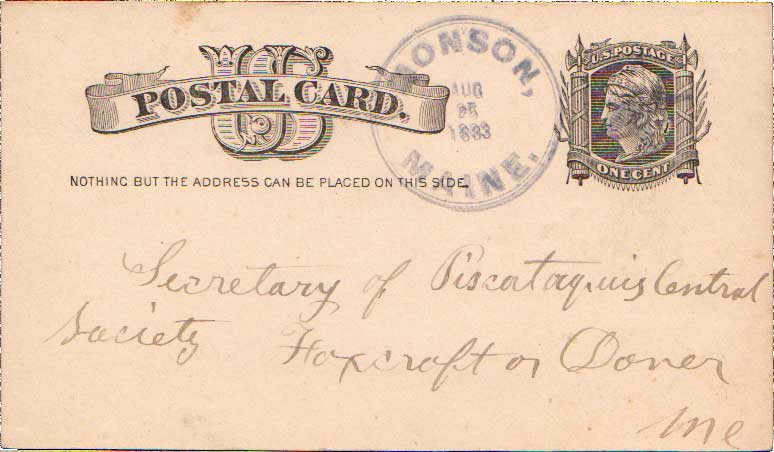 US
POSTAL CARD.
MONSON,
AUG
25
1883
MAINE.
U.S. POSTAGE
ONE CENT
NOTHING BUT THE ADDRESS CAN BE PLACED ON THIS SIDE.
Secretary of Piscataquis Central
Society Foxcroft or Dover
Me